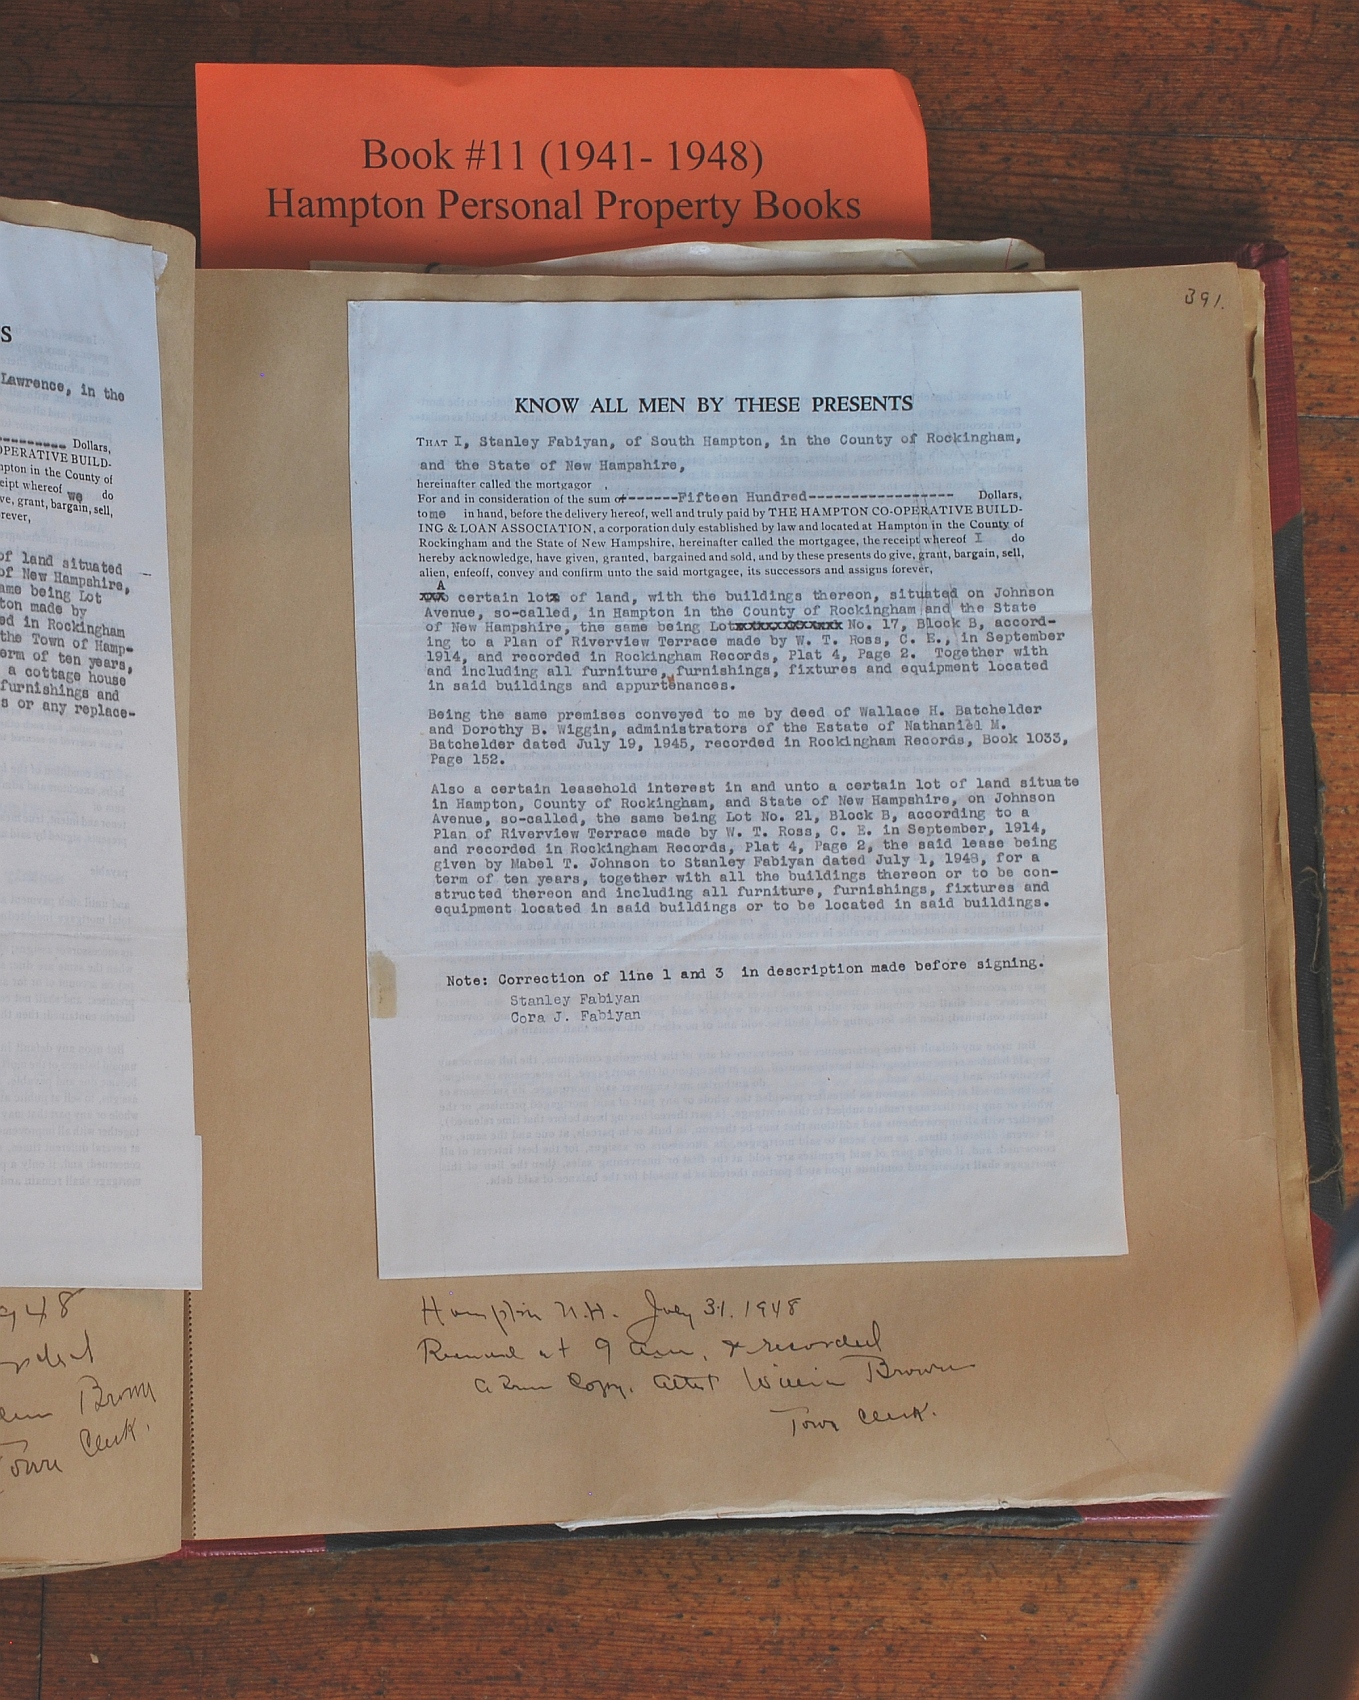 Book #11 (1941- 1948)
Hampton Personal Property Books
S
Lawrence, in the
Dollars,
OPERATIVE BUILD-
mpton in the County of
eipt whereof we do
ve, grant, bargain, sell,
rever,
of land situated
of New Hampshire,
ame being Lot
ton made by
ed in Rockingham
the Town of Hamp-
erm of ten years,
a cottage house
furnishings and
s or any replace-
948
Brown
Town Clerk.
391.
KNOW ALL MEN BY THESE PRESENTS
THAT I, Stanley Fabiyan, of South Hampton, in the County of Rockingham,
and the State of New Hampshire,
hereinafter called the mortgagor .
For and in consideration of the sum of-------Fifteen Hundred----------------- Dollars,
to me in hand, before the delivery hereof, well and truly paid by THE HAMPTON CO-OPERATIVE BUILD-
ING & LOAN ASSOCIATION, a corporation duly established by law and located at Hampton in the County of
Rockingham and the State of New Hampshire, hereinafter called the mortgagee, the receipt whereof I do
hereby acknowledge, have given, granted, bargained and sold, and by these presents do give, grant, bargain, sell,
alien, enfeoff, convey and confirm unto the said mortgagee, its successors and assigns forever,
A
xxx certain lotx of land, with the buildings thereon, situated on Johnson
Avenue, so-called, in Hampton in the County of Rockingham and the State
of New Hampshire, the same being Lotxxxxxxxxxxxxx No. 17, Block B, accord-
ing to a Plan of Riverview Terrace made by W. T. Ross, C. E., in September
1914, and recorded in Rockingham Records, Plat 4, Page 2. Together with
and including all furniture, furnishings, fixtures and equipment located
in said buildings and appurtenances.
Being the same premises conveyed to me by deed of Wallace H. Batchelder
and Dorothy B. Wiggin, administrators of the Estate of Nathaniel M.
Batchelder dated July 19, 1945, recorded in Rockingham Records, Book 1033,
Page 152.
Also a certain leasehold interest in and unto a certain lot of land situate
in Hampton, County of Rockingham, and State of New Hampshire, on Johnson
Avenue, so-called, the same being Lot No. 21, Block B, according to a
Plan of Riverview Terrace made by W. T. Ross, C. E. in September, 1914,
and recorded in Rockingham Records, Plat 4, Page 2, the said lease being
given by Mabel T. Johnson to Stanley Fabiyan dated July 1, 1948, for a
term of ten years, together with all the buildings thereon or to be con-
structed thereon and including all furniture, furnishings, fixtures and
equipment located in said buildings or to be located in said buildings.
Note: Correction of line 1 and 3 in description made before signing.
Stanley Fabiyan
Cora J. Fabiyan
Hampton N.H. July 31. 1948
Received at 9 am, & recorded
a true Copy. Attest William Brown
Town Clerk.